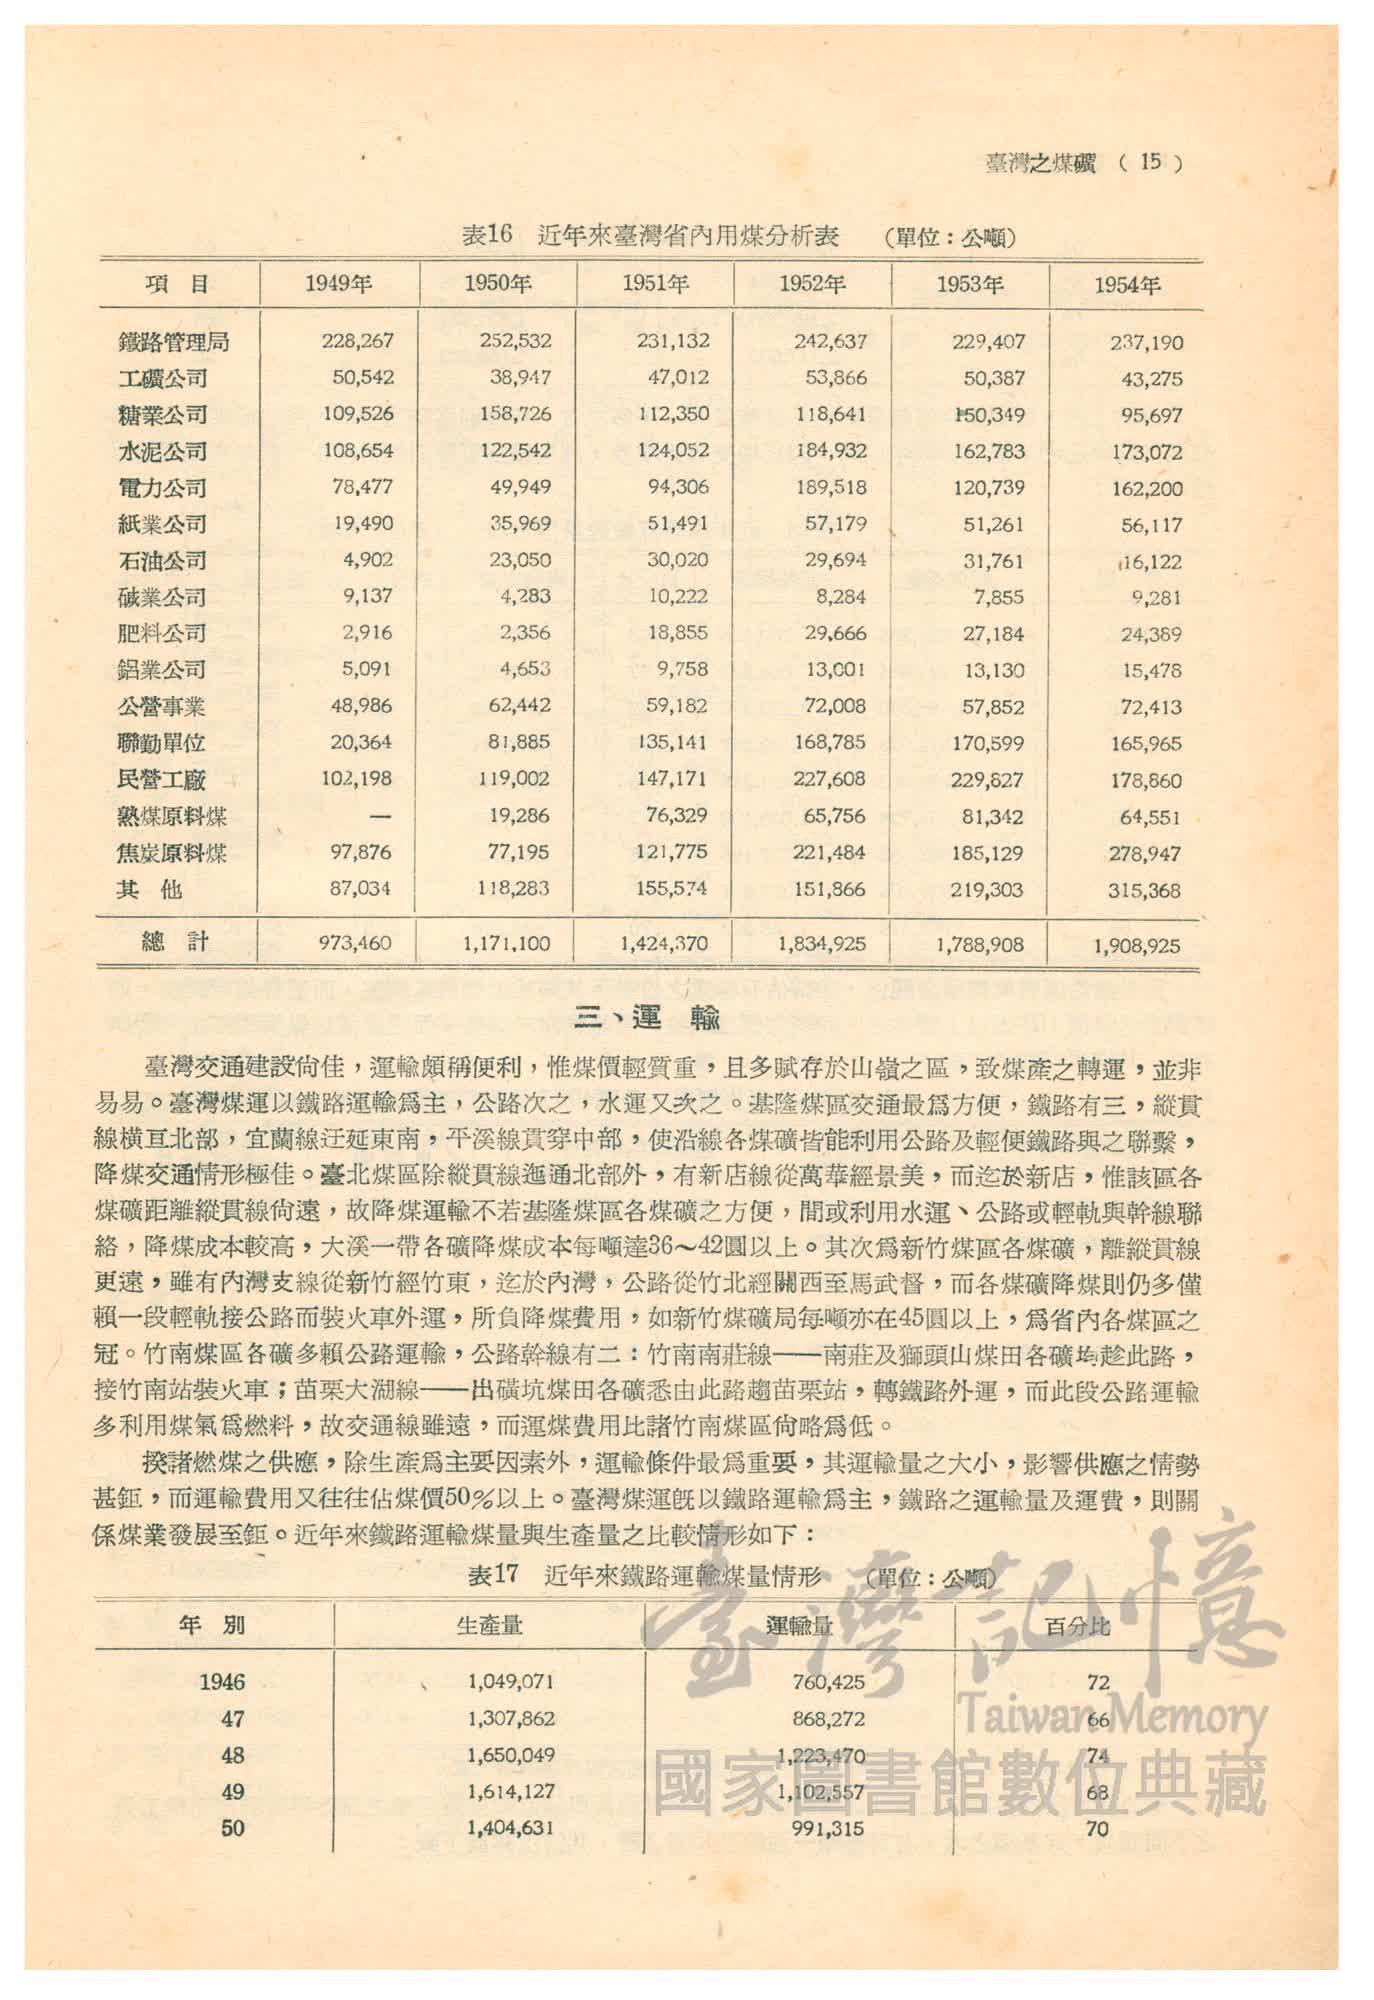 臺灣之煤礦 ( 15 )
表16 近年來臺灣省內用煤分析表 (單位:公噸)
項 目 1949年 1950年 1951年 1952年 1953年 1954年
鐵路管理局 228,267 252,532 231,132 242,637 229,407 237,190
工礦公司 50,542 38,947 47,012 53,866 50,387 43,275
糖業公司 109,526 158,726 112,350 118,641 150,349 95,697
水泥公司 108,654 122,542 124,052 184,932 162,783 173,072
電力公司 78,477 49,949 94,306 189,518 120,739 162,200
紙業公司 19,490 35,969 51,491 57,179 51,261 56,117
石油公司 4,902 23,050 30,020 29,694 31,761 16,122
碱業公司 9,137 4,283 10,222 8,284 7,855 9,281
肥料公司 2,916 2,356 18,855 29,666 27,184 24,389
鋁業公司 5,091 4,653 9,758 13,001 13,130 15,478
公營事業 48,986 62,442 59,182 72,008 57,852 72,413
聯勤單位 20,364 81,885 135,141 168,785 170,599 165,965
民營工廠 102,198 119,002 147,171 227,608 229,827 178,860
熟煤原料煤 — 19,286 76,329 65,756 81,342 64,551
焦炭原料煤 97,876 77,195 121,775 221,484 185,129 278,947
其 他 87,034 118,283 155,574 151,866 219,303 315,368
總 計 973,460 1,171,100 1,424,370 1,834,925 1,788,908 1,908,925
三、運 輸
臺灣交通建設尙佳,運輸頗稱便利,惟煤價輕質重,且多賦存於山嶺之區,致煤產之轉運,並非
易易。臺灣煤運以鐵路運輸爲主,公路次之,水運又次之。基隆煤區交通最爲方便,鐵路有三,縱貫
線橫亘北部,宜蘭線迂延東南,平溪線貫穿中部,使沿線各煤礦皆能利用公路及輕便鐵路與之聯繫,
降煤交通情形極佳。臺北煤區除縱貫線迤通北部外,有新店線從萬華經景美,而迄於新店,惟該區各
煤礦距離縱貫線尙遠,故降煤運輸不若基隆煤區各煤礦之方便,間或利用水運、公路或輕軌與幹線聯
絡,降煤成本較高,大溪一帶各礦降煤成本每噸達36~42圓以上。其次爲新竹煤區各煤礦,離縱貫線
更遠,雖有內灣支線從新竹經竹東,迄於內灣,公路從竹北經關西至馬武督,而各煤礦降煤則仍多僅
賴一段輕軌接公路而裝火車外運,所負降煤費用,如新竹煤礦局每噸亦在45圓以上,爲省內各煤區之
冠。竹南煤區各礦多賴公路運輸,公路幹線有二:竹南南莊線——南莊及獅頭山煤田各礦均趁此路,
接竹南站裝火車;苗栗大湖線——出磺坑煤田各礦悉由此路趨苗栗站,轉鐵路外運,而此段公路運輸
多利用煤氣爲燃料,故交通線雖遠,而運煤費用比諸竹南煤區尙略爲低。
揆諸燃煤之供應,除生產爲主要因素外,運輸條件最爲重要,其運輸量之大小,影響供應之情勢
甚鉅,而運輸費用又往往佔煤價50%以上。臺灣煤運旣以鐵路運輸爲主,鐵路之運輸量及運費,則關
係煤業發展至鉅。近年來鐵路運輸煤量與生產量之比較情形如下:
表17 近年來鐵路運輸煤量情形 (單位:公噸)
年 別 生產量 運輸量 百分比
1946 1,049,071 760,425 72
47 1,307,862 868,272 66
48 1,650,049 1,223,470 74
49 1,614,127 1,102,557 68
50 1,404,631 991,315 70
臺灣記憶
Taiwan Memory
國家圖書館數位典藏